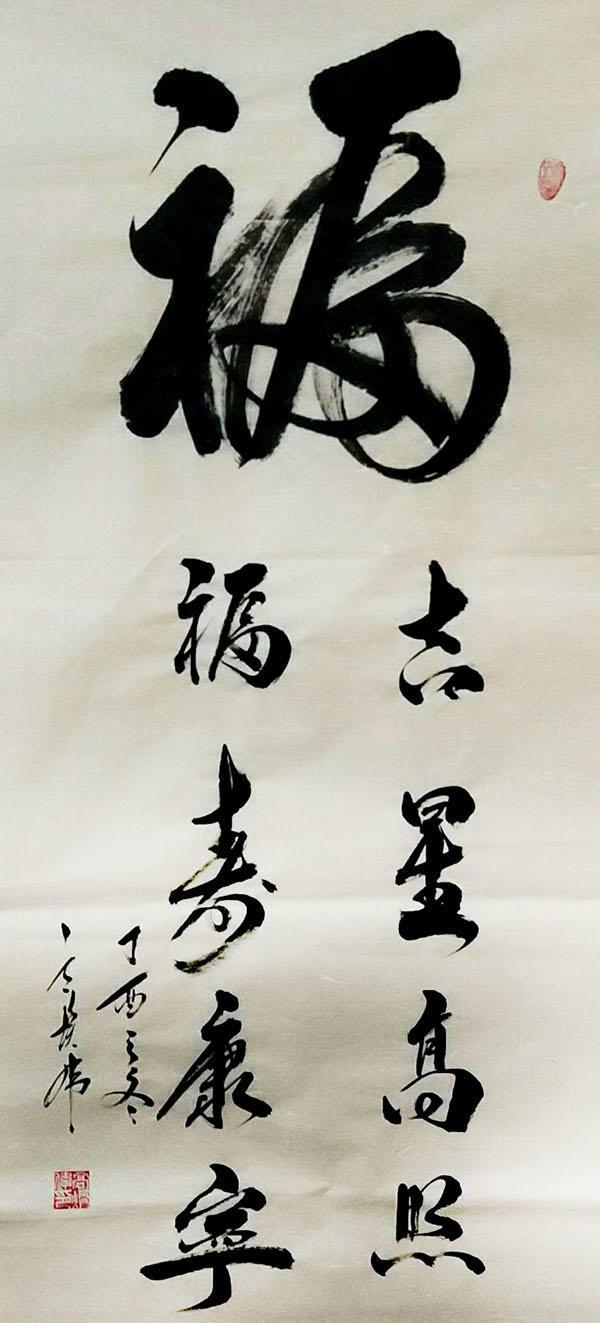 福
吉星高照
福寿康宁
丁酉之冬